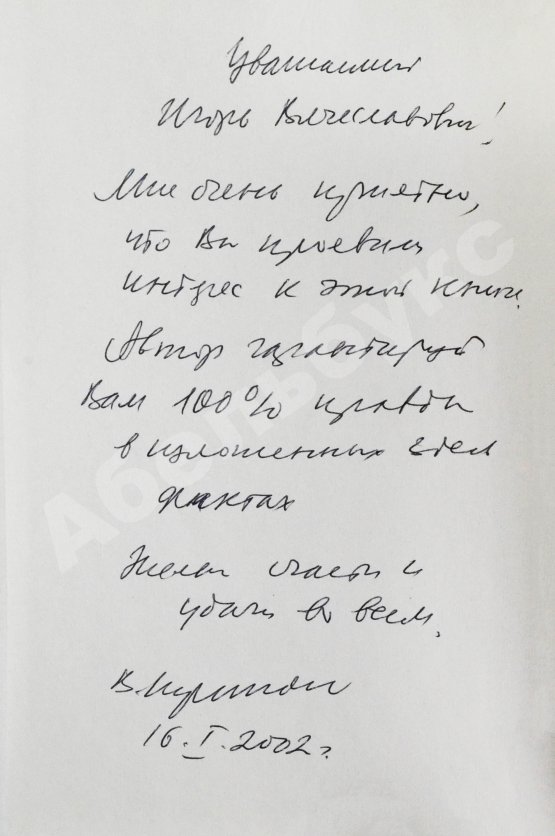 Уважаемый
Игорь Вячеславович!
Мне очень приятно,
что Вы проявили
интерес к этой книге.
Автор гарантирует
Вам 100% правды
в изложенных здесь
фактах
Желаю счастья и
удачи во всем.
16.I.2002г.
Абельбукс